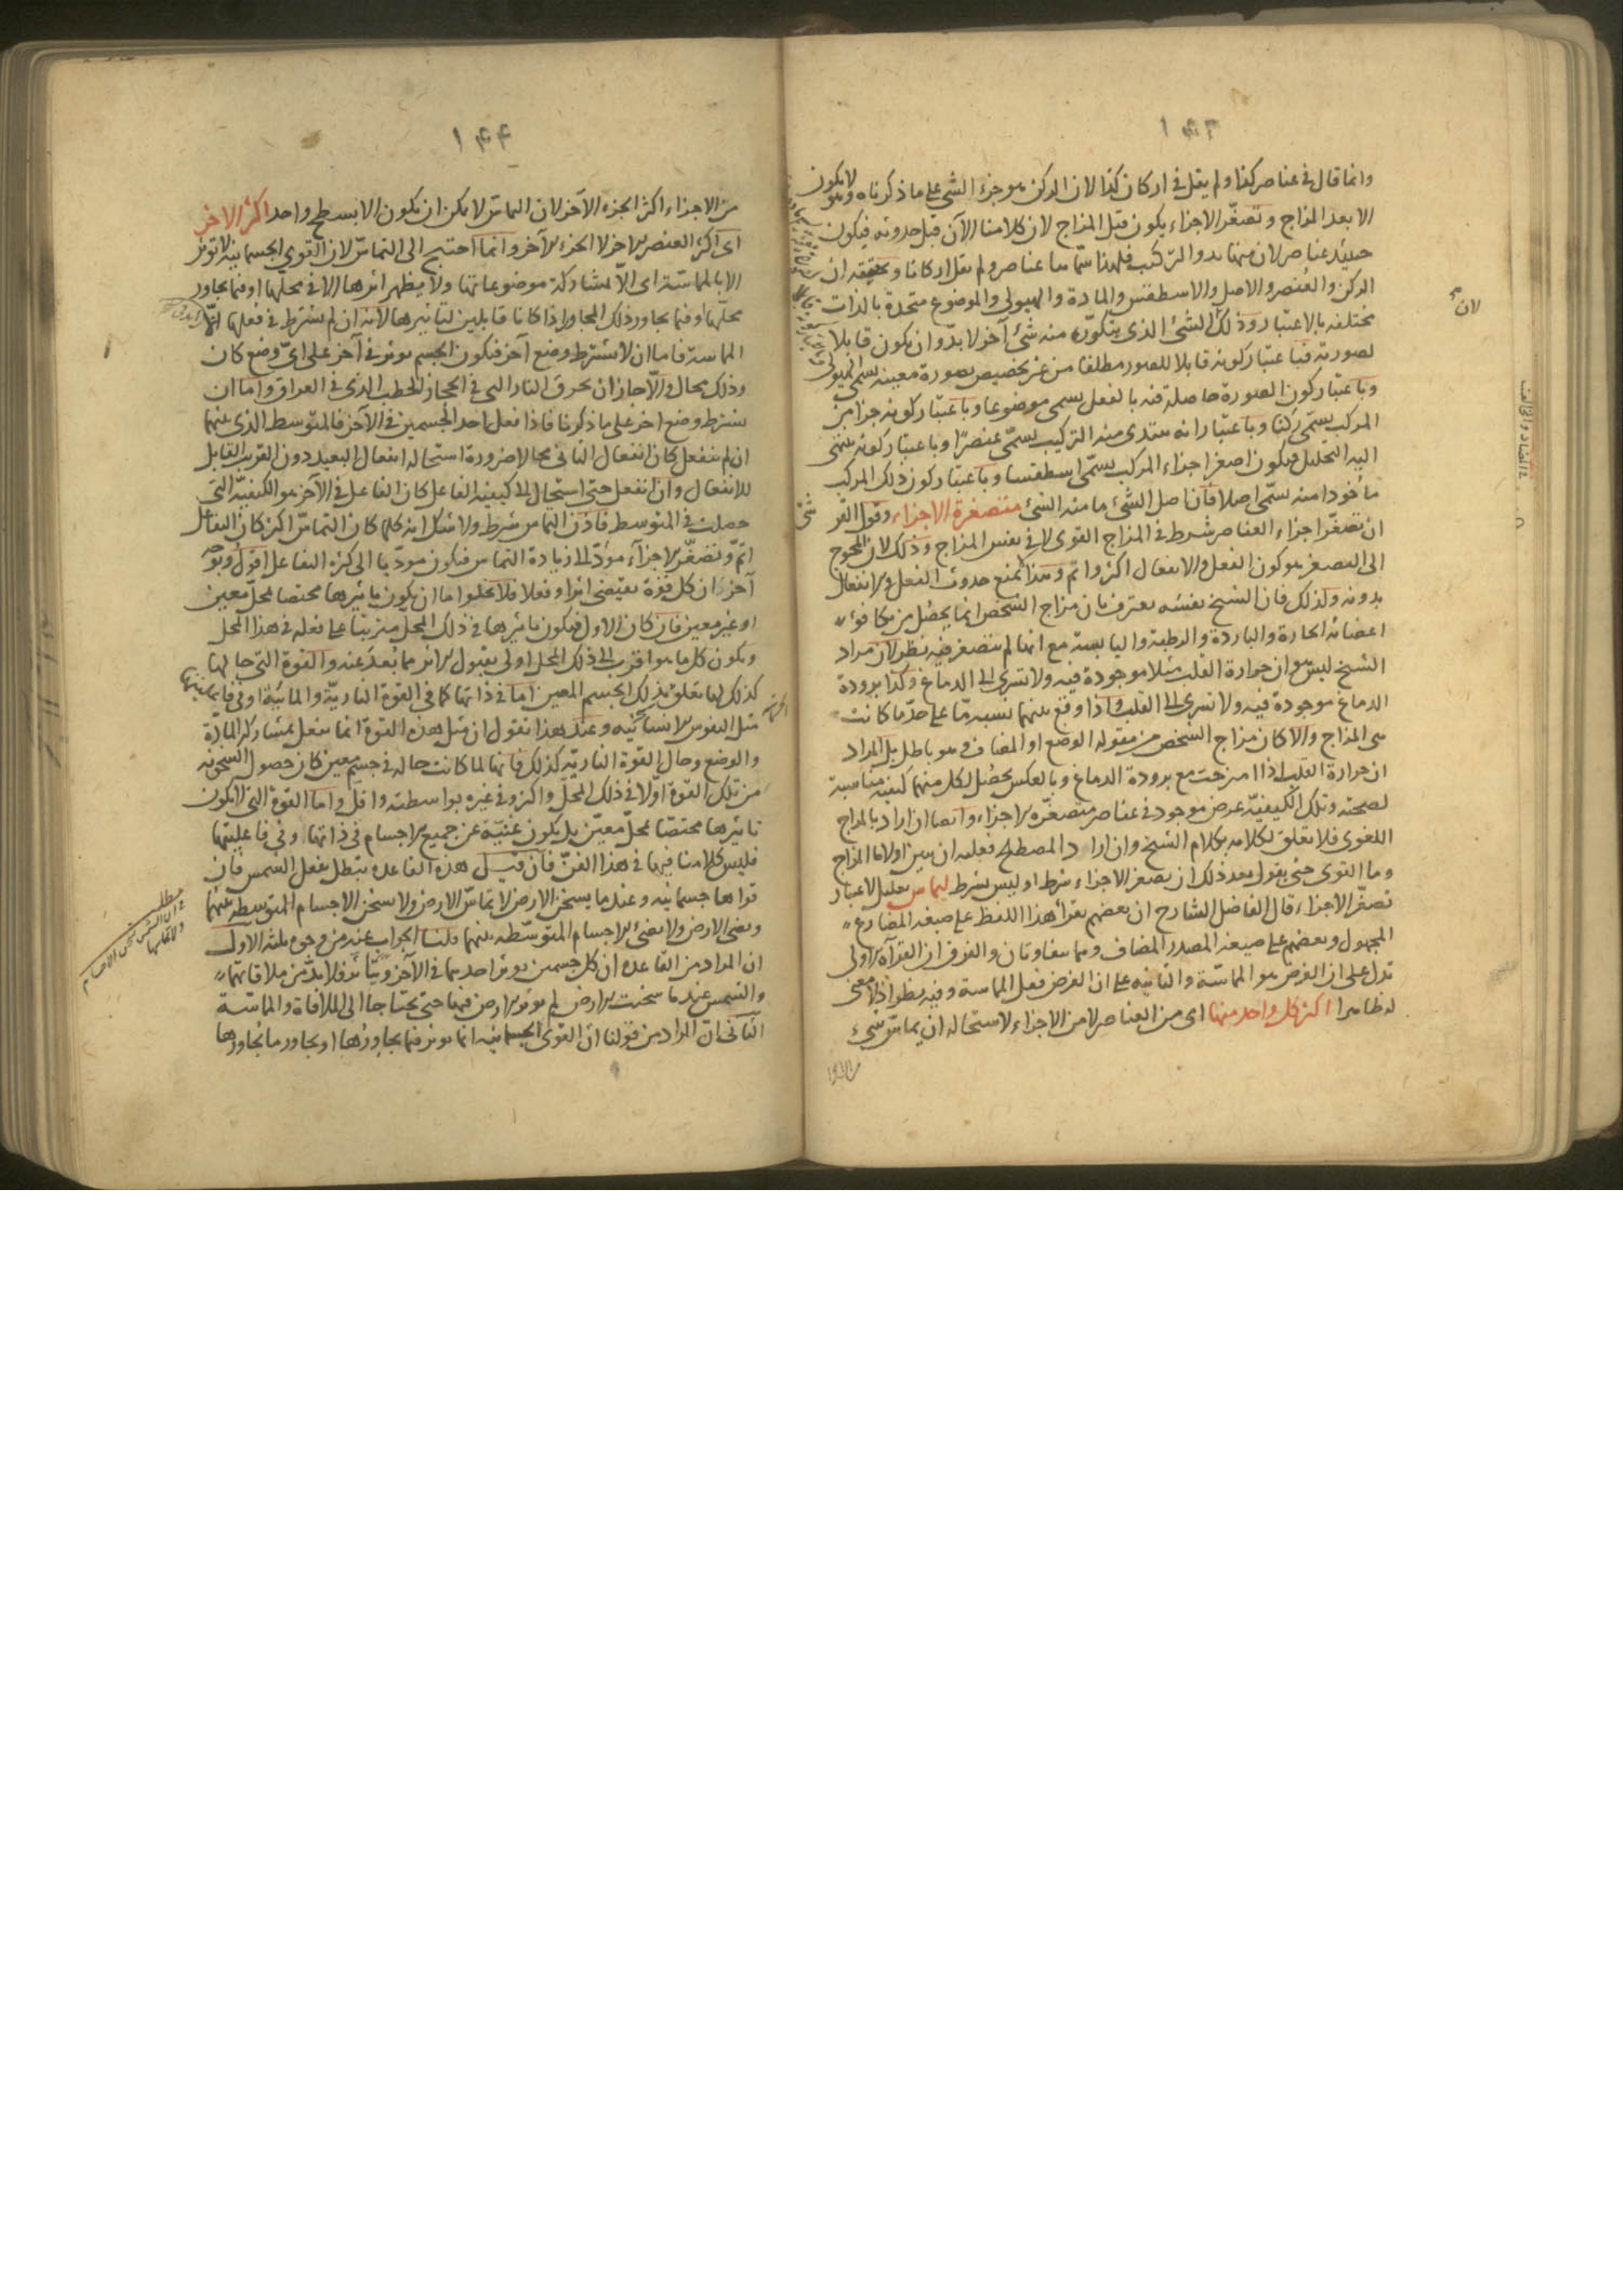 ١٤٣
وانما قال فى عناصر كذا ولم يقل فى اركان كذا لان الركن هو جزء الشئ على ما ذكرناه وهو لا يكون
الا بعد المزاج وتصغّر الاجزاء يكون قبل المزاج لان كلامنا الآن قبل حدوثه فيكون
حينئذ عناصر لان منها بدو التركيب فلهذا سماها عناصر ولم يقل اركانا وتحقيقه ان
الركن والعنصر والاصل والاسطقس والمادة والهيولى والموضوع متحدة بالذات
مختلفة بالاعتبار وذلك الشئ الذى يتكوّن منه شئ آخر لا بدّ وان يكون قابلا
لصورته فباعتبار كونه قابلا للصور مطلقا من غير تخصيص بصورة معينة يسمى هيولى
وباعتبار كون الصورة حاصلة فيه بالفعل يسمى موضوعا وباعتبار كونه جزا من
المركب يسمّى ركنا وباعتبار انه يبتدى منه التركيب يسمّى عنصرًا وباعتبار كونه ينتهى
اليه التحليل فيكون اصغر اجزاء المركب يسمّى اسطقسا وباعتبار كون ذلك المركب
ماخوذا منه يسمّى اصلا فان اصل الشئ ما منه الشئ متصغرة الاجزاء وقول القرشى
ان تصغّر اجزاء العناصر شرط فى المزاج القوى لا فى نفس المزاج وذلك لان المحوج
الى التصغر هو كون الفعل والانفعال اكثر واتم وهذا لا يمنع حدوث الفعل والانفعال
بدونه ولذلك فان الشيخ نفسه يعترف بان مزاج الشخص انما يحصل من تكافؤ
اعضائه الحارة والباردة والرطبة واليابسة مع انها لم تتصغر ففيه نظر لان مراد
الشيخ ليس هو ان حرارة القلب مثلا موجودة فيه ولا تسرى الى الدماغ وكذا برودة
الدماغ موجودة فيه ولا تسرى الى القلب واذا وقع بينهما نسبة مّا على حدّ ما كانت
هى المزاج والا كان مزاج الشخص من مقولة الوضع او المضاف وهو باطل بل المراد
ان حرارة القلب اذا امتزجت مع برودة الدماغ وبالعكس يحصل لكل منهما كيفية مناسبة
لصحته وتلك الكيفيّة عرض موجود فى عناصر متصغّرة الاجزاء وايضا ان اراد بالمزاج
اللغوى فلا تعلق لكلامه بكلام الشيخ وان اراد المصطلح فعليه ان يبين اولا ما المزاج
وما القوى حتى يقول بعد ذلك ان تصغر الاجزاء شرط او ليس بشرط ليماس تعليل لاعتبار
تصغّر الاجزاء قال الفاضل الشارح ان بعضهم يقرأ هذا اللفظ على صيغة المضارع
المجهول وبعضهم على صيغة المصدر المضاف وهما متفاوتان والفرق ان القرآة الاولى
تدل على ان الغرض هو المماسّة والثانية على ان الغرض فعل المماسة وفيه نظر اذ لا معنى
له ظاهرا اكثر كل واحد منها اى من العناصر لا من الاجزاء لاستحالة ان يماسّ شئ
لان
١٤٤
من الاجزاء اكثر الجزء الآخر لان التماسّ لا يمكن ان يكون الا بسطح واحد اكثر الاخر
اى اكثر العنصر الاخر لا الجزء الآخر وانما احتيج الى التماسّ لان القوى الجسمانية لا تؤثر
الا بالمماسّة اى الّا بمشاركة موضوعاتها ولا يظهر اثرها الا فى محلها او فيما يجاور
محلّها او فيما يجاور ذلك المجاور اذا كانا قابلين لتاثيرها لانه ان لم يشترط فى فعلها
المماسة فاما ان لا يشترط وضع آخر فيكون الجسم يوثر فى آخر على اىّ وضع كان
وذلك محال والّا جاز ان تحرق النار التى فى الحجاز الحطب الذى فى العراق واما ان
يشترط وضع اخر على ما ذكرنا فاذا فعل احد الجسمين فى الآخر فالمتوسط الذى بينهما
ان لم ينفعل كان انفعال الثانى محالا ضرورة استحالة انفعال البعيد دون القريب القابل
للانفعال وان انفعل حتى استحال الى كيفية الفاعل كان الفاعل فى الآخر هو الكيفيّة التى
حصلت فى المتوسط فاذن التماس شرط ولا شك انه كلما كان التماسّ اكثر كان التفاعل
اتمّ وتصغّر الاجزآء مؤدّ الى زيادة التماس فيكون مودّيا الى كثرة التفاعل اقول وبوجه
آخر ان كل قوة تقتضى اثرا وفعلا فلا يخلوا اما ان يكون تاثيرها مختصا بمحلّ معين
او غير معين فان كان الاول فيكون تاثيرها فى ذلك المحل مترتبا على فعله فى هذا المحل
ويكون كل ما هو اقرب الى ذلك المحل اولى بقبول الاثر مما بَعُدَ عنه والقوة التى حالها
كذلك لها تعلق بذلك الجسم المعين اما فى ذاتها كما فى القوة الناريّة والمائيّة او فى فاعليتها
مثل النفوس الانسانيّة وعند هذا نقول ان مثل هذه القوة انما تفعل بمشاركة المادّة
والوضع وحال القوة النارية كذلك فانها لما كانت حالة فى جسم معين كان حصول السخونة
من تلك القوة اوّلا فى ذلك المحلّ واكثر وفى غيره بواسطته واقل واما القوة التى لا يكون
تاثيرها مختصّا بمحلّ معيّن بل يكون غنيّة عن جميع الاجسام فى ذاتها وفى فاعليتها
فليس كلامنا فيها فى هذا الفنّ فان قيل هذه القاعده تبطل بفعل الشمس فان
قواها جسمانية وعندما يسخن الارض لا يماسّ الارض ولا يسخن الاجسام المتوسطة بينهما
ويضئ الارض ولا يضئ الاجسام المتوسّطة بينهما قلنا الجواب عنه من وجوه ثلثة الاول
ان المراد من القاعده ان كل جسمين يوثر احدهما فى الآخر ويتأثر فلا بدّ من ملاقاتهما
والشمس عندما سخنت الارض لم يوثر الارض فيها حتى يحتاجا الى الملاقاة والمماسّة
الثّانى ان المراد من قولنا انّ القوى الجسمانيّة انما يوثر فيما يجاورُها او يجاور ما يُجاورها
مطلب
فى ان الشمس تسخن الاجسام